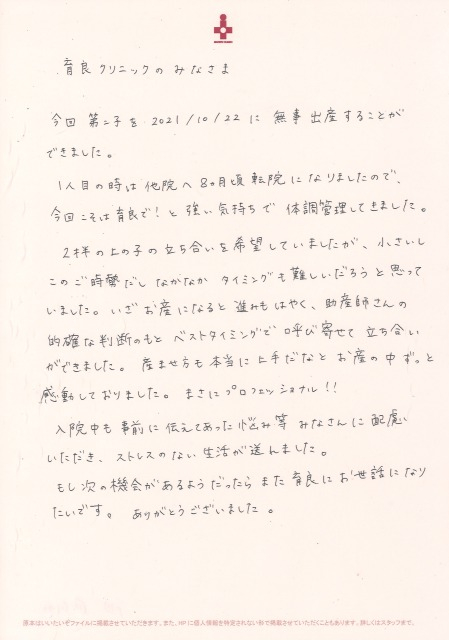 育良クリニックのみなさま
今回 第二子を 2021/10/22 に 無事出産することが
できました。
1人目の時は他院へ8ヶ月頃転院になりましたので、
今回こそは育良で！と強い気持ちで 体調管理してきました。
2才半の上の子の立ち合いを希望していましたが、小さいし
このご時勢だし なかなか タイミングも難しいだろうと思って
いました。いざお産になると進みもはやく、助産師さんの
的確な判断のもと ベストタイミングで呼び寄せて立ち合い
ができました。産ませ方も本当に上手だなと お産の中ずっと
感動しておりました。まさにプロフェッショナル!!
入院中も事前に伝えてあった悩み等 みなさんに配慮
いただき、ストレスのない生活が送れました。
もし次の機会があるようだったら また育良にお世話になり
たいです。 ありがとうございました。
原本はいいたいぞファイルに掲載させていただきます。また、HPに個人情報を特定されない形で掲載させていただくこともあります。詳しくはスタッフまで。